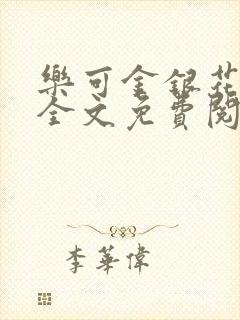 樂可金銀花
全文免費閱
李華偉